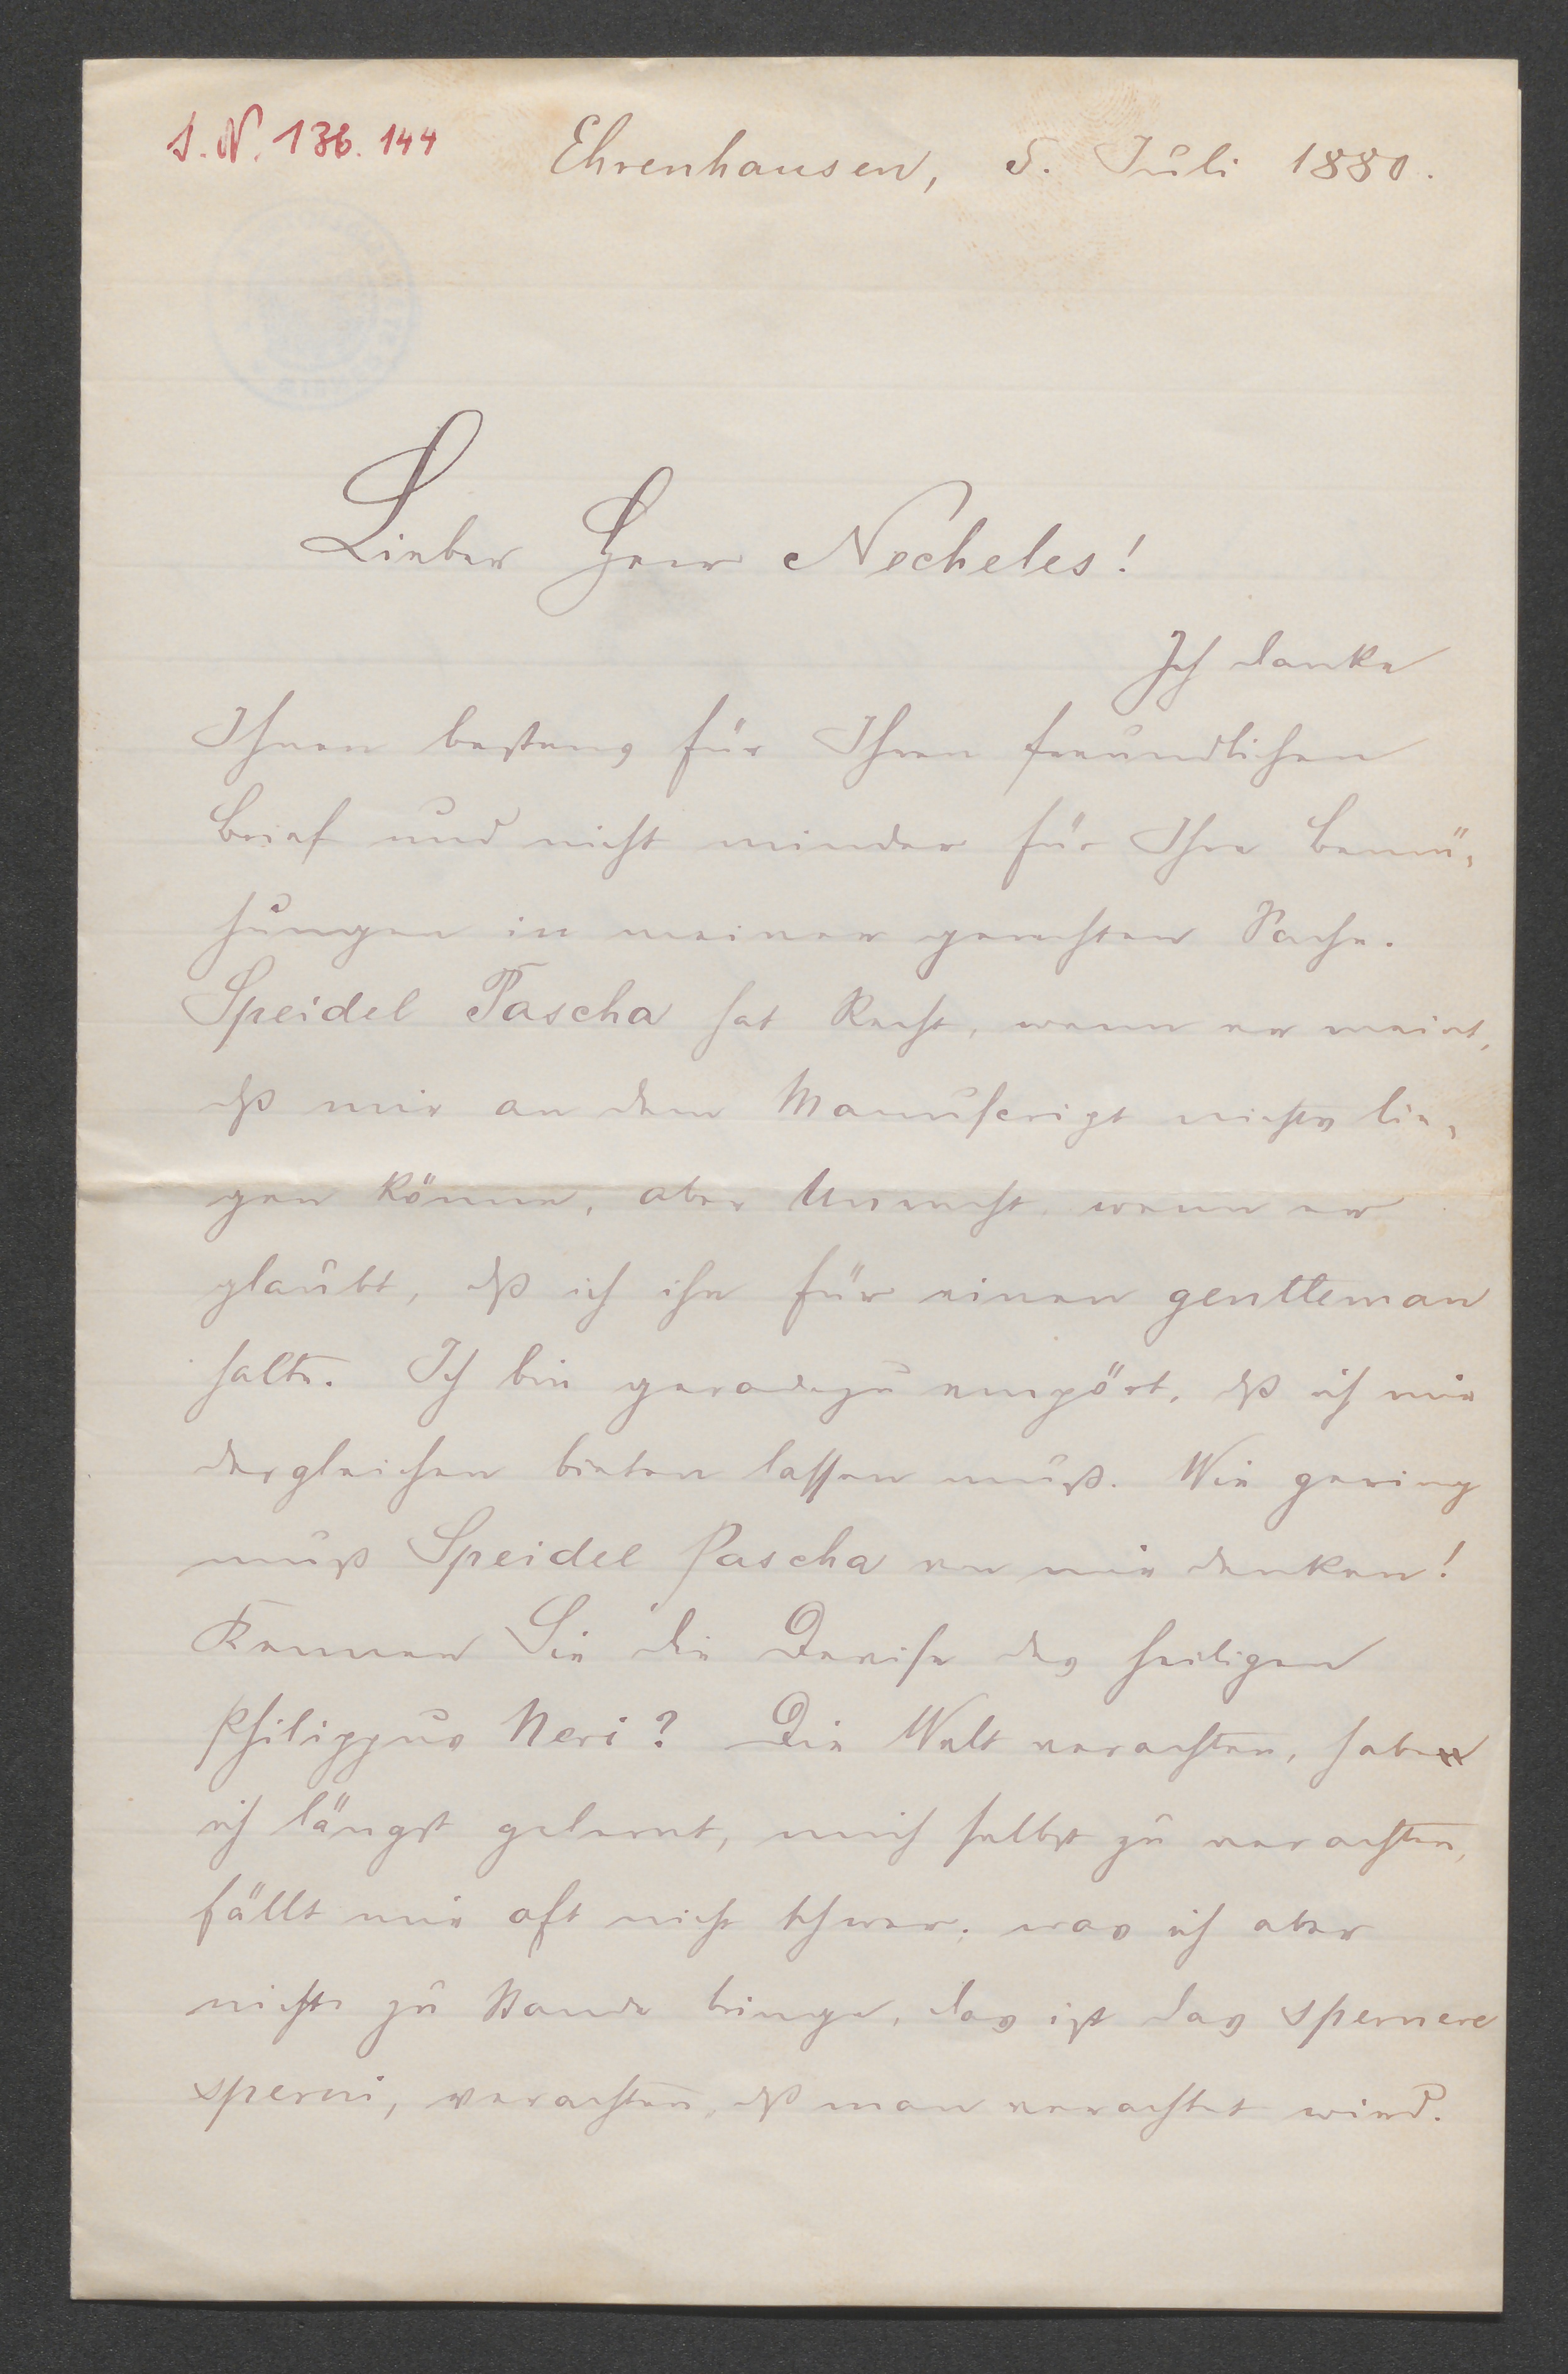 I. N. 136.144
Ehrenhausen, 5. Juli 1880.
Lieber Herr Necheles!
Ich danke
Ihnen bestens für Ihren freundlichen
Brief und nicht minder für Ihre Bemü-
hungen in meiner gerechten Sache.
Speidel Pascha hat Recht, wenn er meint,
dß mir an dem Manuscript nichts lie-
gen könne, aber Unrecht, wenn er
glaubt, dß ich ihn für einen gentleman
halte. Ich bin geradezu empört, dß ich mir
dergleichen bieten lassen muß. Wie gering
muß Speidel Pascha von mir denken!
Kennen Sie die Devise des heiligen
Philippus Neri? Die Welt verachten, habe
ich längst gelernt, mich selbst zu verachten,
fällt mir oft nicht schwer; was ich aber
nicht zu Stande bringe, das ist das spernere
sperni, verachten, dß man verachtet wird.